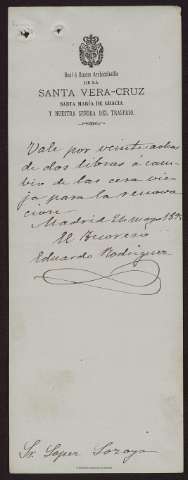 Real é Ilustre Archicofradía
DE LA
SANTA VERA-CRUZ
SANTA MARÍA DE GRACIA
Y NUESTRA SEÑORA DEL TRASPASO.
Vale por veinte
de dos libras á cam-
bio de las cera vie-
ja para la renova-
cion.
Madrid 26 Mayo
El Tesorero
Eduardo Rodriguez
Sr. Lopez